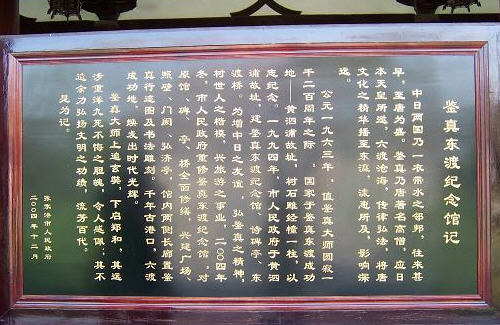 鉴真东渡纪念馆记
中日两国乃一衣带水之邻邦，往来甚
早，至唐为盛。鉴真乃唐著名高僧，应日
本天皇所邀，六渡沧海，传律弘法，将唐
文化之精华播至东瀛，流惠所及，影响深
远。
公元一九六三年，值鉴真大师圆寂一
千二百周年之际，国家于鉴真东渡成功
地——黄泗浦故址，树石雕经幢一柱，以
志纪念。一九九四年，市人民政府于黄泗
浦故址，建鉴真东渡纪念馆，诗碑亭、东
渡桥。为增中日之友谊，弘鉴真之精神，
村世人之楷模，兴旅游之事业，二00四年
冬，市人民政府重修鉴真东渡纪念馆。对
原馆、碑、亭、桥全面修缮，兴建广场、
照壁、门阙、弘济亭，馆内两侧长廊置鉴
真行迹图及书法雕刻。千年古港口，六渡
成功地，焕发出时代光辉。
鉴真大师上追玄奘，下启郑和，其远
涉重洋九死不悔之胆魄，令人感佩；其不
遗余力弘扬文明之功绩，流芳百代。
是为记。
张家港市人民政府
二00四年十二月